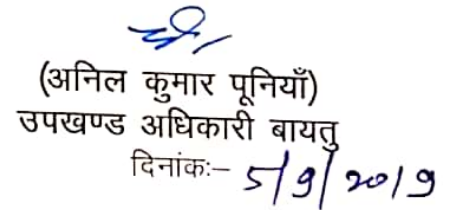 (अनिल कुमार पूनियाँ)
उपखण्ड अधिकारी बायतु
दिनांकः– 5/9/2019